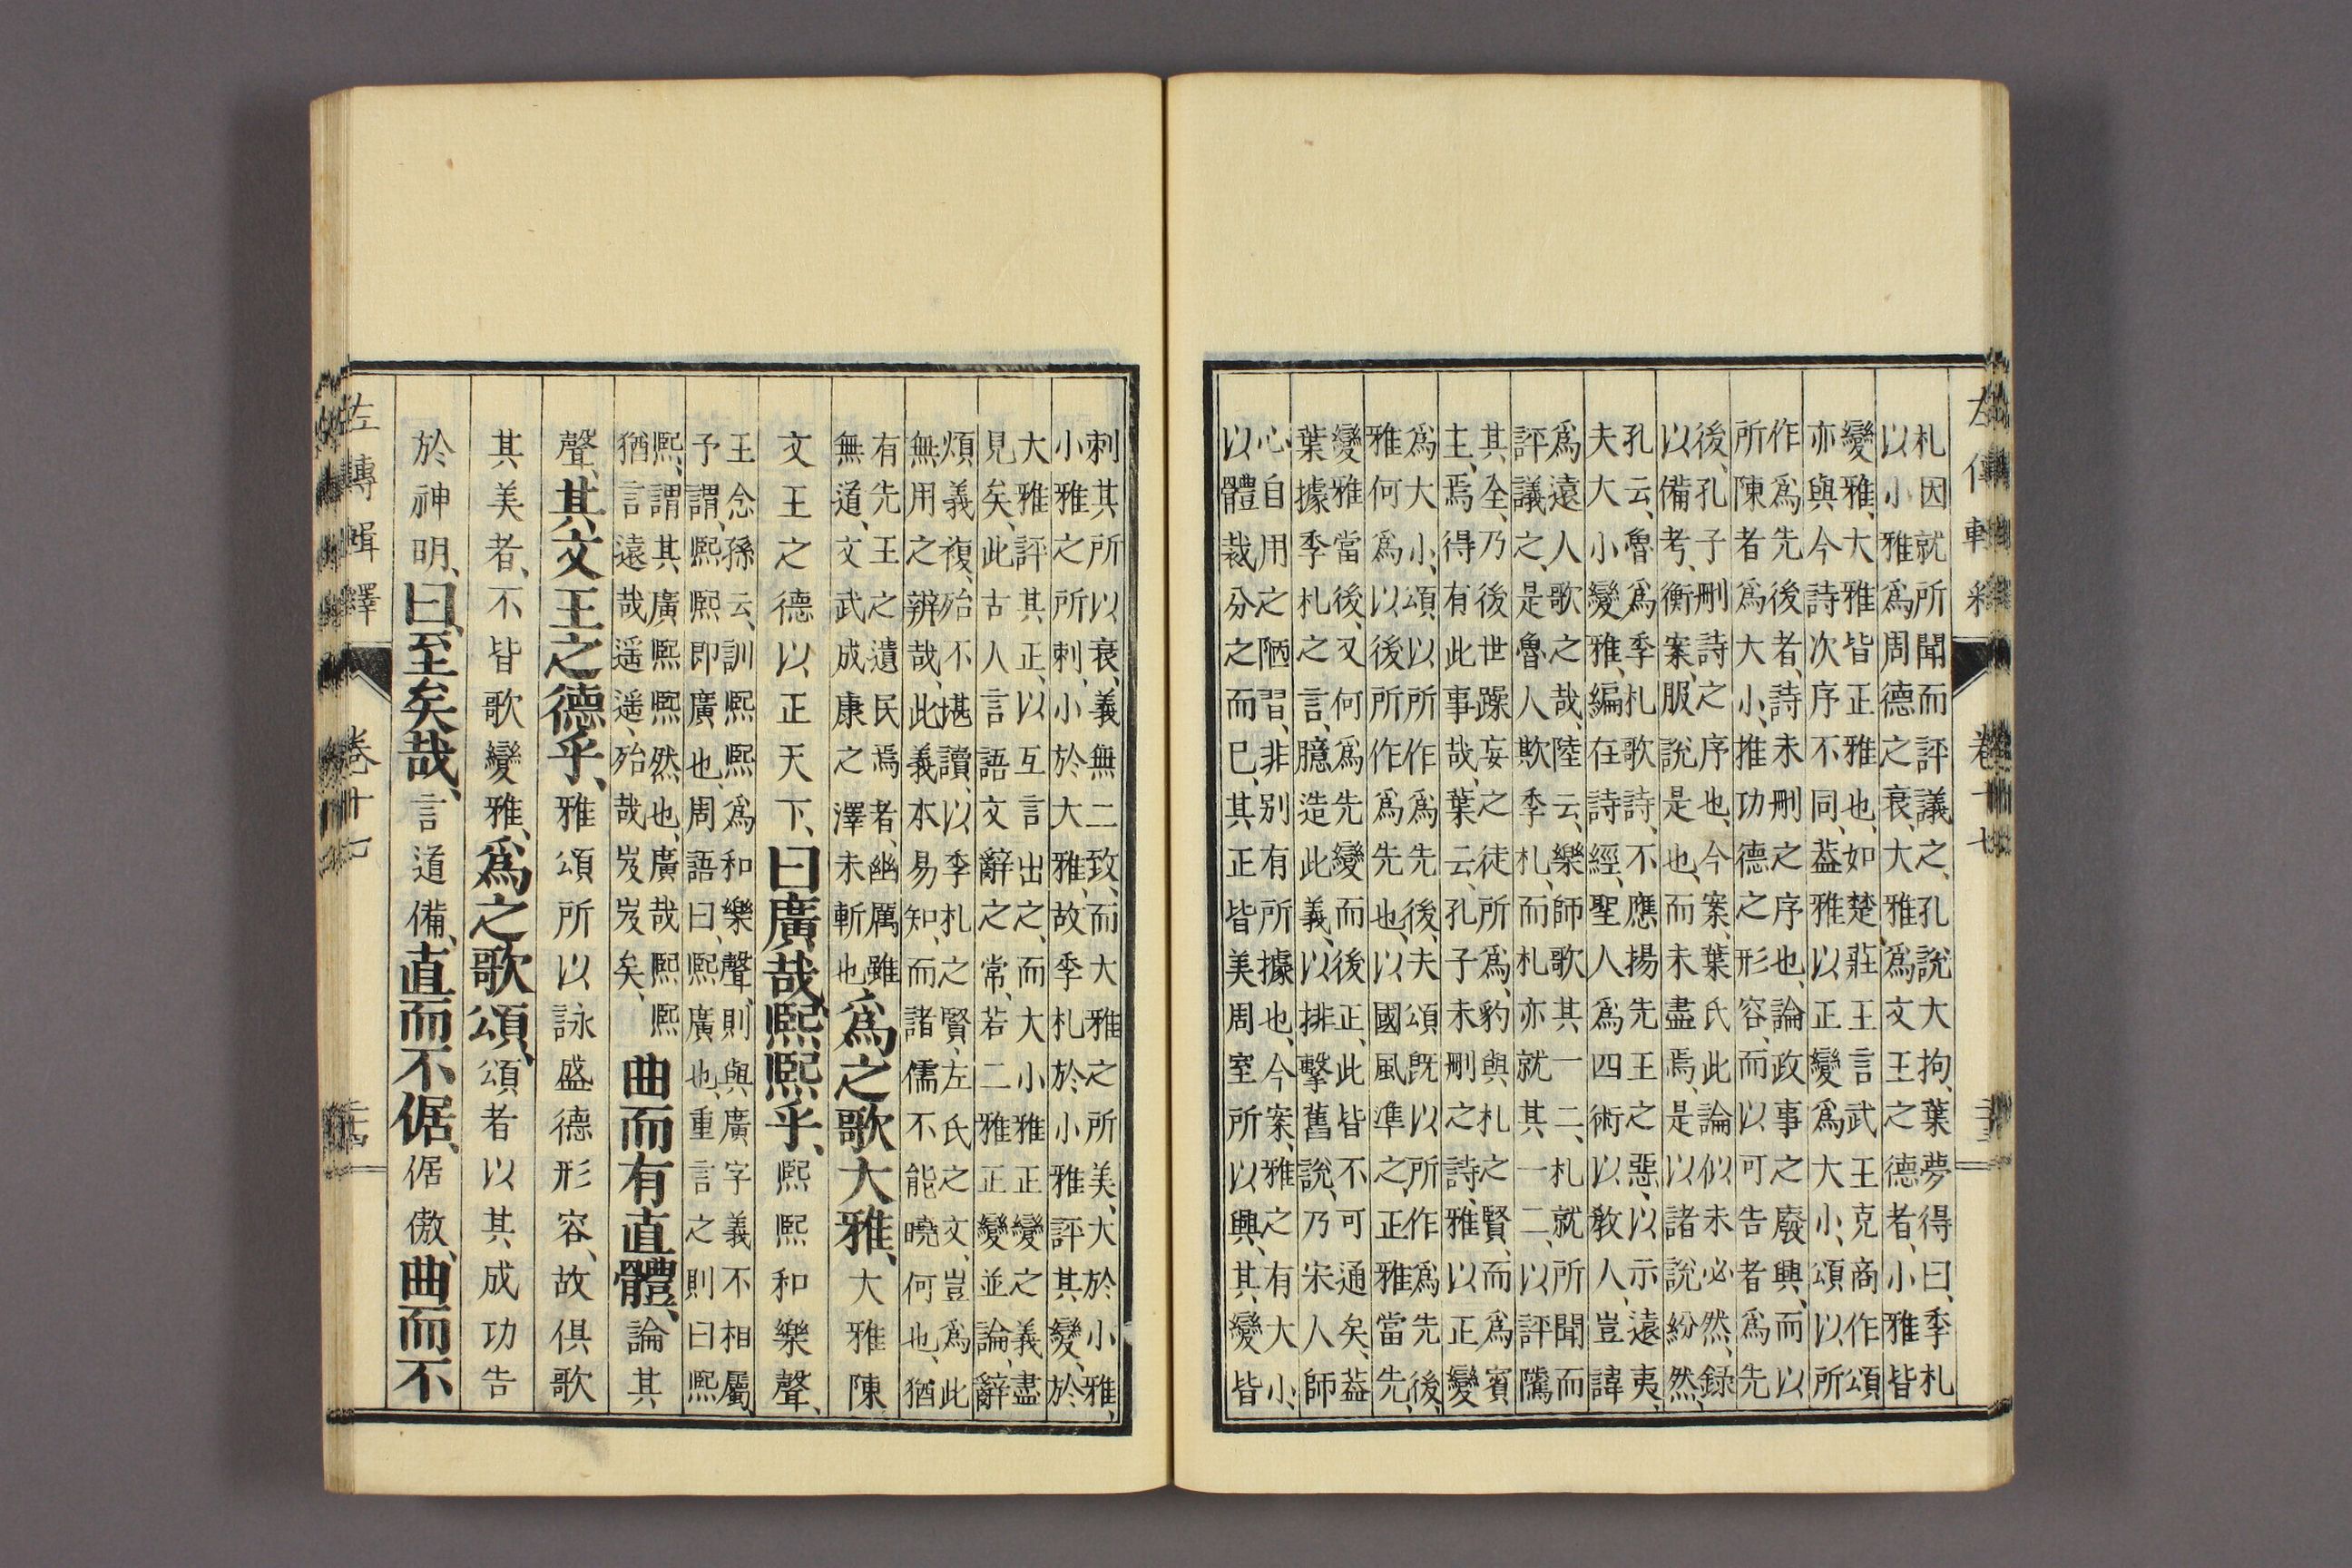 札因就所聞而評議之、孔說大拘、葉夢得曰、季札
以小雅爲周德之衰、大雅爲文王之德者、小雅皆
變雅、大雅皆正雅也、如楚莊王言武王克商作頌
亦與今詩次序不同、葢雅以正變爲大小、頌以所
作爲先後者、詩未刪之序也、論政事之廢興、而以
所陳者爲大小、推功德之形容、而以可告者爲先
後、孔子刪詩之序也、今案、葉氏此論似未必然、録
以備考、衡案、服說是也、而未盡焉、是以諸說紛然、
孔云、魯爲季札歌詩、不應揚先王之惡、以示遠夷、
夫大小變雅、編在詩經、聖人爲四術以敎人、豈諱
爲遠人歌之哉、陸云、樂師歌其一二、札就所聞而
評議之、是魯人欺季札、而札亦就其一二、以評騭
其全、乃後世躁妄之徒所爲、豹與札之賢、而爲賓
主、焉得有此事哉、葉云、孔子未刪之詩、雅以正變
爲大小、頌以所作爲先後、夫頌既以所作爲先後、
雅何爲以後所作爲先也、以國風準之、正雅當先、
變雅當後、又何爲先變而後正、此皆不可通矣、葢
葉據季札之言、臆造此義、以排擊舊說、乃宋人師
心自用之陋習、非別有所據也、今案、雅之有大小、
以體裁分之而已、其正皆美周室所以興、其變皆
刺其所以衰、義無二致、而大雅之所美、大於小雅、
小雅之所刺、小於大雅、故季札於小雅評其變、於
大雅評其正、以互言出之、而大小雅正變之義盡
見矣、此古人言語文辭之常、若二雅正變並論、辭
煩義複、殆不堪讀、以季札之賢、左氏之文、豈爲此
無用之辨哉、此義本易知、而諸儒不能曉何也、猶
有先王之遺民焉者、幽厲雖
無道、文武成康之澤未斬也、爲之歌大雅、大雅陳
文王之德、以正天下、曰廣哉、熙熙乎、熙熙和樂聲、
王念孫云、訓熙熙爲和樂聲、則與廣字義不相屬、
予謂、熙熙即廣也、周語曰、熙廣也、重言之則曰熙
熙、謂其廣熙熙然也、廣哉熙熙
猶言遠哉遥遥、殆哉岌岌矣、曲而有直體、論其
聲、其文王之德乎、雅頌所以詠盛德形容、故俱歌
其美者、不皆歌變雅、爲之歌頌、頌者以其成功告
於神明、曰、至矣哉、言道備、直而不倨、倨傲、曲而不
左傳輯釋 卷十七